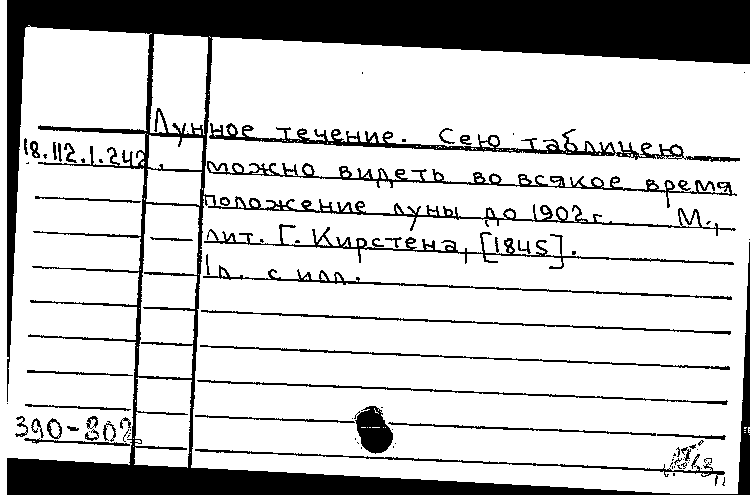 Лунное течение. Сею таблицею
18.112.1.242. можно видеть во всякое время
положение луны до 1902 г. М.,
лит. Г. Кирстена, [1845].
1 л. с илл.
390-802